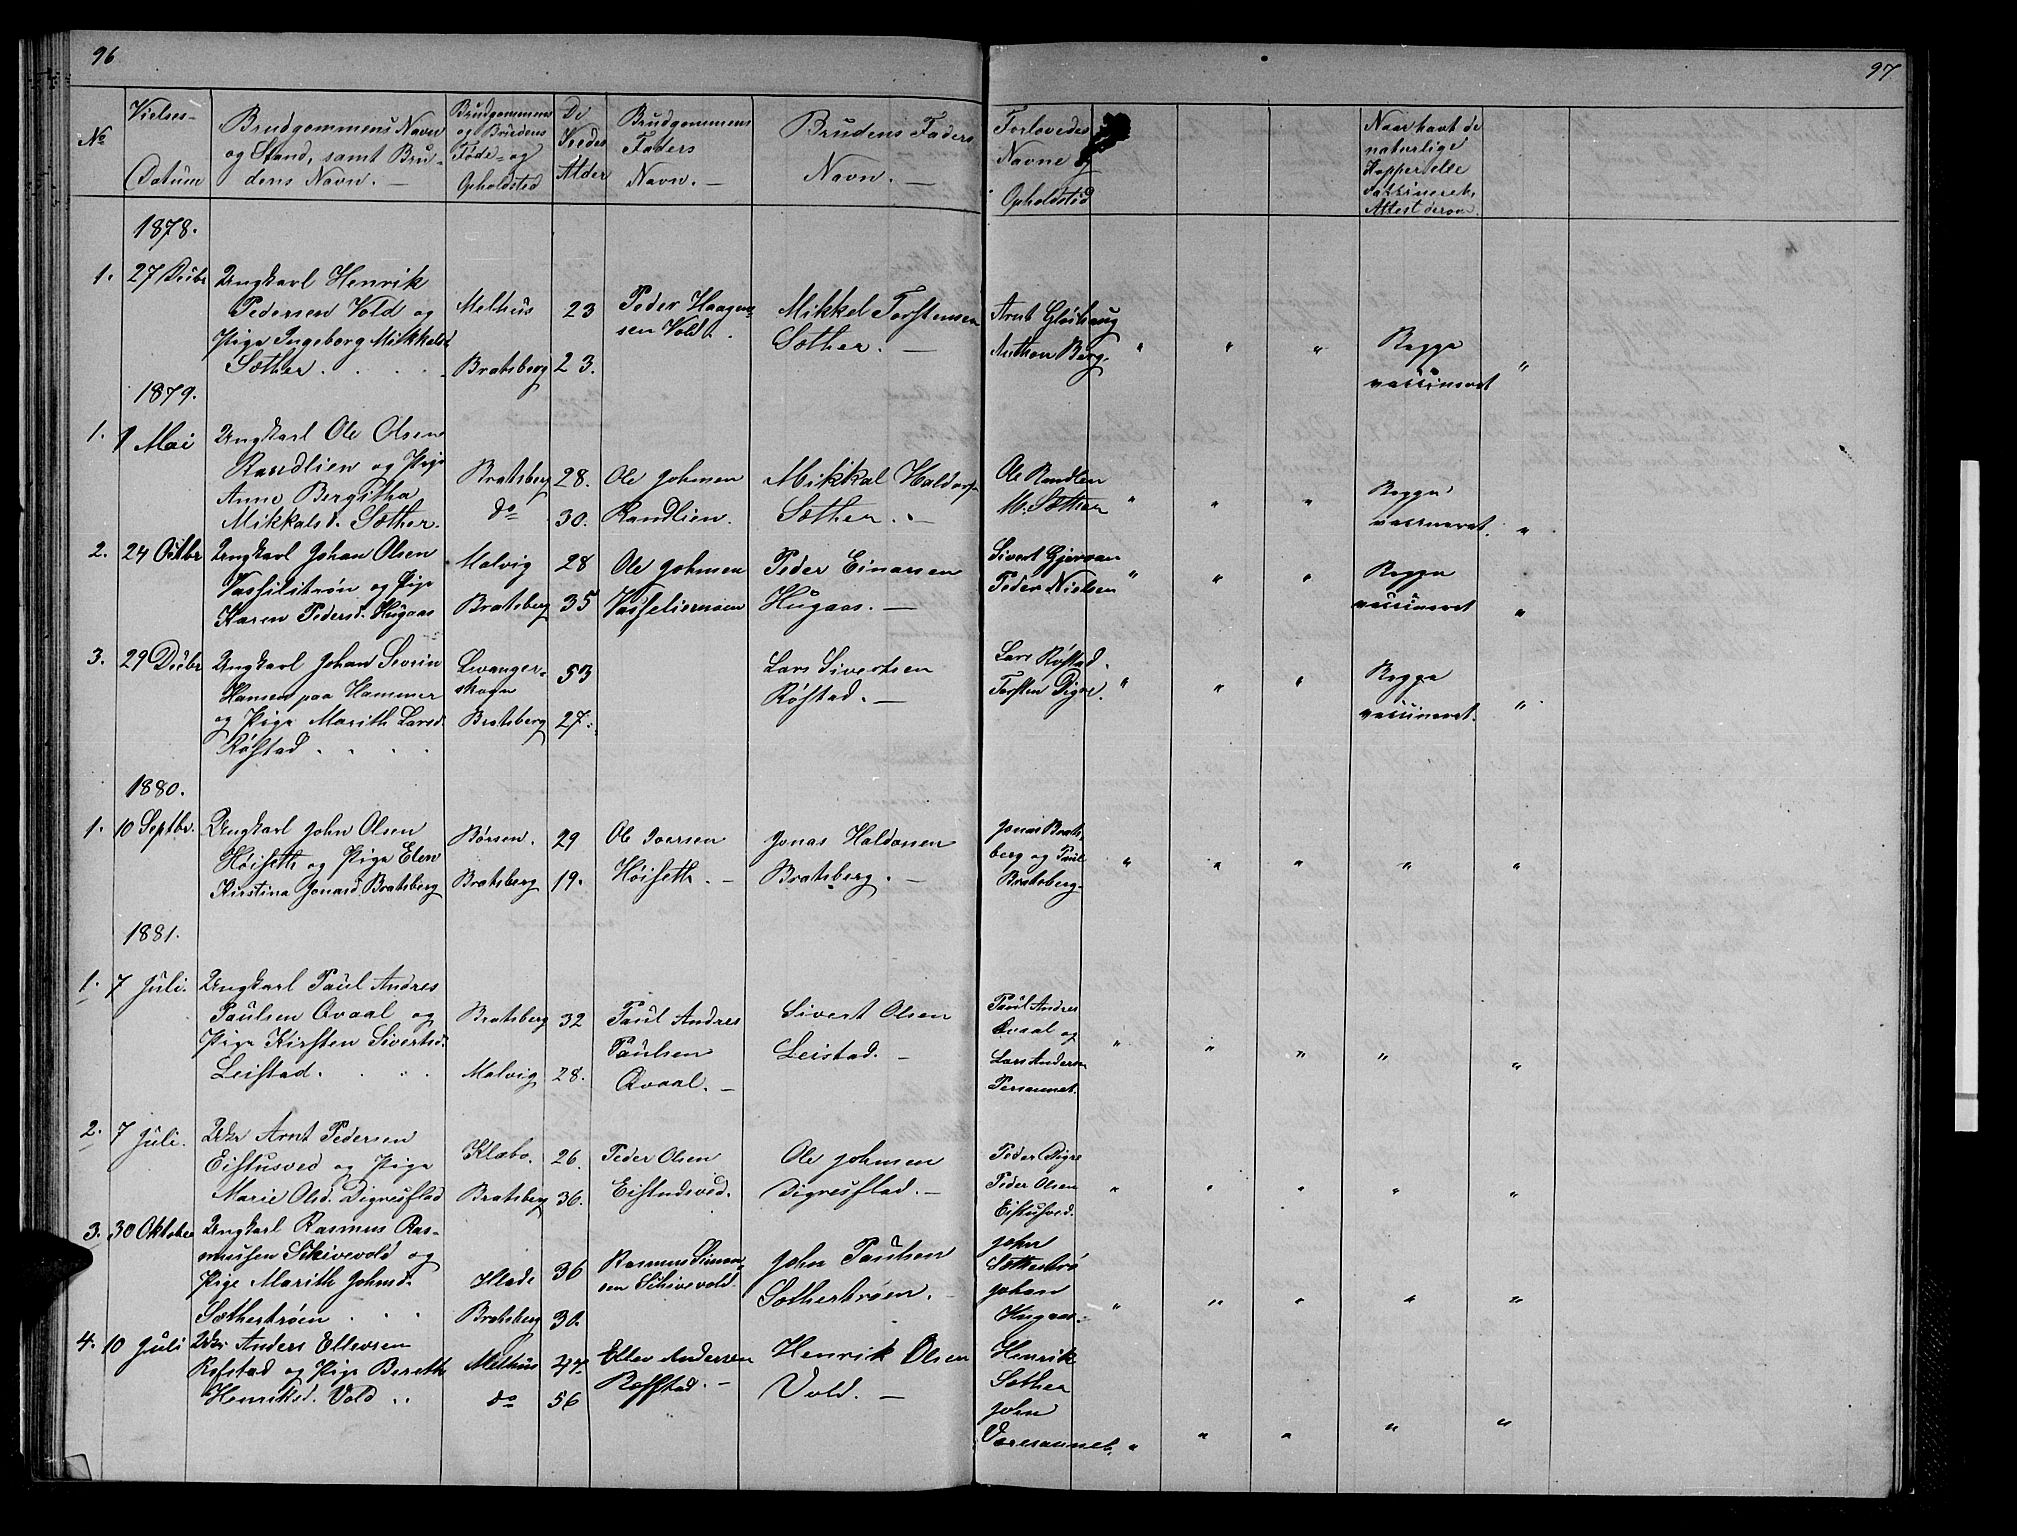 96
97
No
Vielses-
Datum
Brudgommens Navn
og Stand, samt Bru-
dens Navn. —
Brudgommens
og Brudens
Føde- og
Opholdsted
De
Viedes
Alder
Brudgommens
Faders
Navn. —
Brudens Faders
Navn. —
Forlovedes
Navne
Opholdsted
Naar havt de
naturlige
Kopper elle
vaksineret,
Attest derom.
1878.
1. 27 Decbr Ungkarl Henrik
Pedersen Vold og
Pige Ingeborg Mikkelsd
Sæther . . . .
Melhus 23
Bratsberg 23.
Peder Haagen-
sen Vold .
Mikkel Torstensen
Sæther. —
Arnt Gløshaug
Anthon Berg.
" " "
Begge
vaccineret "
1879.
1. 1 Mai Ungkarl Ole Olsen
Randlien og Pige
Anne Bergitha
Mikkelsd. Sæther.
Bratsberg 28.
do 30.
Ole Johnsen
Randlien.
Mikkal Haldors
Sæther. —
Ole Randlien
M. Sæther
" " "
Begge
vaccineret. "
2. 24 Octbr Ungkarl Johan Olsen
Vasslitrøn og Pige
Karen Pedersd. Hugaas
Malvig 28
Bratsberg 35
Ole Johnsen
Peder Einarsen
Hugaas. —
Sivert Gjervan
Peder Nielsen
" " "
Begge
vaccineret "
3. 29 Decbr Ungkarl Johan Severin
Hansen paa Hammer
og Pige Marith Larsd.
Røstad . . . .
Levanger-
skogn 53
Bratsberg 27.
Lars Sivertsen
Røstad. —
Lars Røstad.
Torsten Digre.
" " "
Begge
vaccineret. "
1880.
1. 10 Septbr. Ungkarl John Olsen
Høiseth og Pige Elen
Kirstina Jonasd Bratsberg
Børsen. 29
Bratsberg 19.
Ole Iversen
Høiseth. —
Jonas Haldorsen
Bratsberg. —
Jonas Brats-
berg og Paul
Bratsberg.
" " " " "
1881.
1. 7 Juli. Ungkarl Paul Andres
Paulsen Qvaal og
Pige Kirsten Sivertsd.
Leistad. . . .
Bratsberg 32
Malvig 28.
Paul Andres
Paulsen
Qvaal. —
Sivert Olsen
Leistad. —
Paul Andres
Qvaal og
Lars Andersen
Persaunet.
" " " " "
2. 7 Juli. Ukr Arnt Pedersen
Eistusved og Pige
Marie Olsd. Digresflad
Klæbo. 26.
Bratsberg 36.
Peder Olsen
Eistudsved.
Ole Johnsen
Digresflad. —
Peder Digre
Peder Olsen
Eistusved.
" " " " "
3. 30 Oktober Ungkarl Rasmus Ras-
mussen Skivevold og
Pige Marith Johnsd.
Sæthertrøen . . .
Hlade 36
Bratsberg 30.
Rasmus Simon-
sen Skivevold
John Paulsen
Sæthertrøen. —
John
Johan
Hugaas.
" " " " "
4. 10 Juli Ukr Anders Ellevsen
Rofstad og Pige Bereth
Henriksd. Vold . .
Melhus 47
do 56
Ellev Andersen
Rofstad. —
Henrik Olsen
Vold. —
Henrik
Sæther
John
Væresaunet.
" " " " "